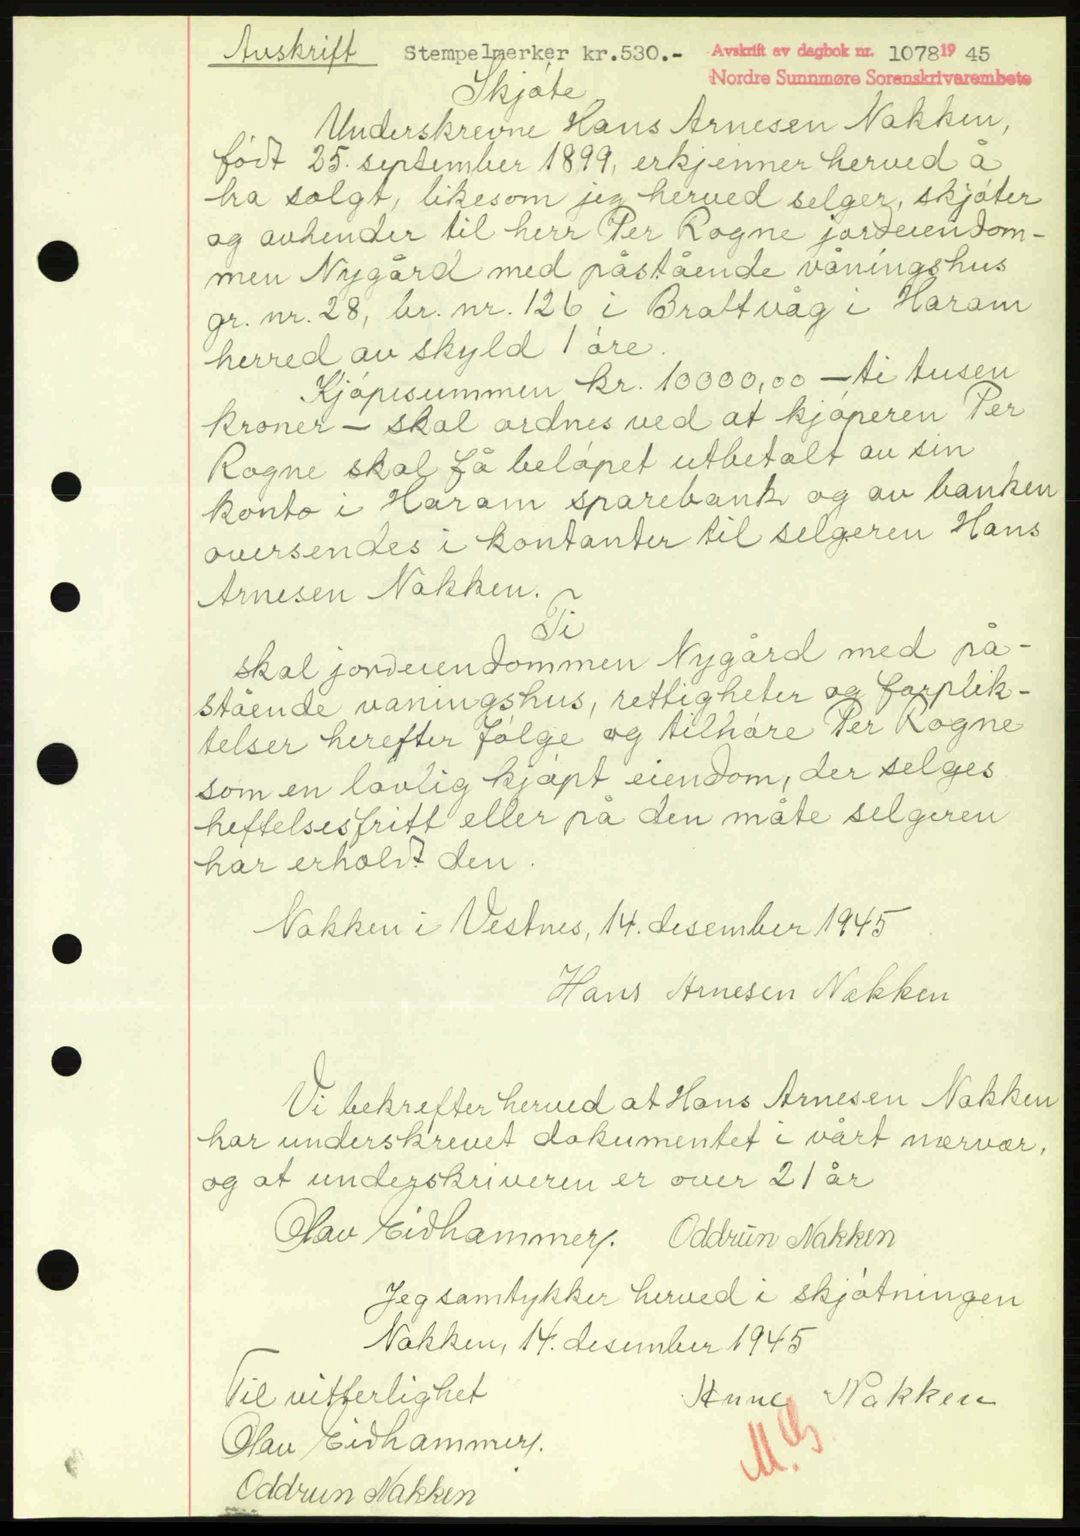 Avskrift Stempelmerker kr.530.- Avskrift av dagbok nr. 1078 19 45
Nordre Sunnmøre Sorenskriverembete
Skjøte
Underskrevne Hans Arnesen Nakken,
født 25. september 1899, erkjenner herved å
ha solgt, likesom jeg herved selger, skjøter
og avhender til herr Per Rogne jordeiendom-
men Nygård med påstående våningshus
gr. nr. 28, br. nr. 126 i Brattvåg i Haram
herred av skyld 1 øre.
Kjøpesummen kr. 10000,00 – ti tusen
kroner – skal ordnes ved at kjøperen Per
Rogne skal få beløpet utbetalt av sin
konto i Haram sparebank og av banken
oversendes i kontanter til selgeren Hans
Arnesen Nakken.
Ti
skal jordeiendommen Nygård med på-
stående våningshus, rettigheter og forplik-
telser herefter følge og tilhøre Per Rogne
som en lovlig kjøpt eiendom, der selges
heftelsesfritt eller på den måte selgeren
har erholdt den.
Nakken i Vestnes, 14. desember 1945
Hans Arnesen Nakken
Vi bekrefter herved at Hans Arnesen Nakken
har underskrevet dokumentet i vårt nærvær,
og at underskriveren er over 21 år
Olav Eidhammer. Oddrun Nakken
Jeg samtykker herved i skjøtningen
Nakken, 14. desember 1945
Til vitterlighet Anne Nakken
Olav Eidhammer.
Oddrun Nakken